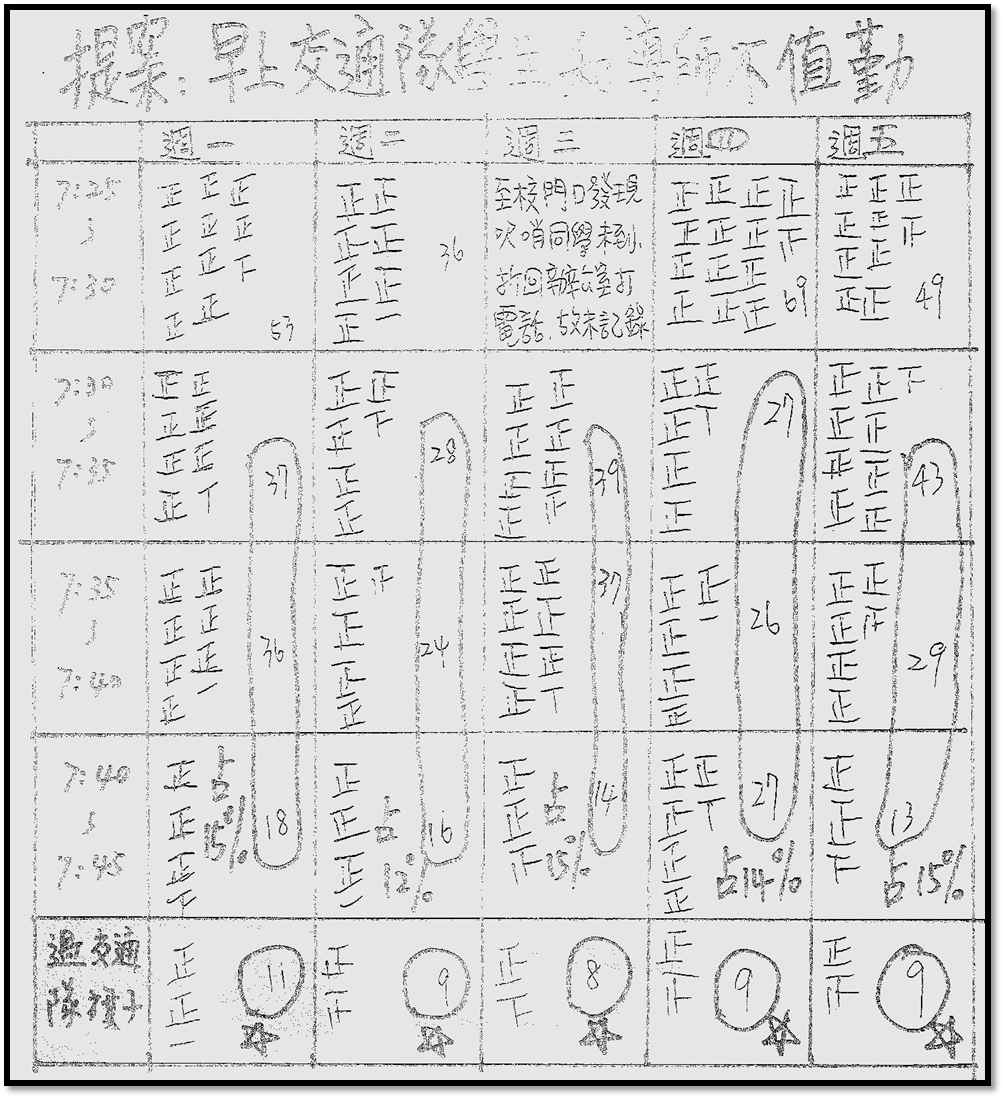 提案：早上交通隊學生與導師不值勤
週一 週二 週三 週四 週五
7:25
～
7:30
正正正正正正正正正正下 53
正正正正正正正一 36
至校門口發現
吹哨同學未到、
折回辦公室打
電話、故未記錄
正正正正正正正正正正正正正正 69
正正正正正正正正正正 49
7:30
～
7:35
正正正正正正正丅 37
正正正正正下 28
正正正正正正正正 39
正正正正正丅 27
正正正正正正正正下 43
7:35
～
7:40
正正正正正正正一 36
正正正正正 24
正正正正正正正丅 37
正正正正正一 26
正正正正正正 29
7:40
～
7:45
正正正下 占15% 18
正正正一 占12% 16
正正正 占15% 14
正正正正正丅 27 占14%
正正下 13 占15%
過交通
隊擋子
正正一 11
正正 9
正下 8
正正 9
正正 9